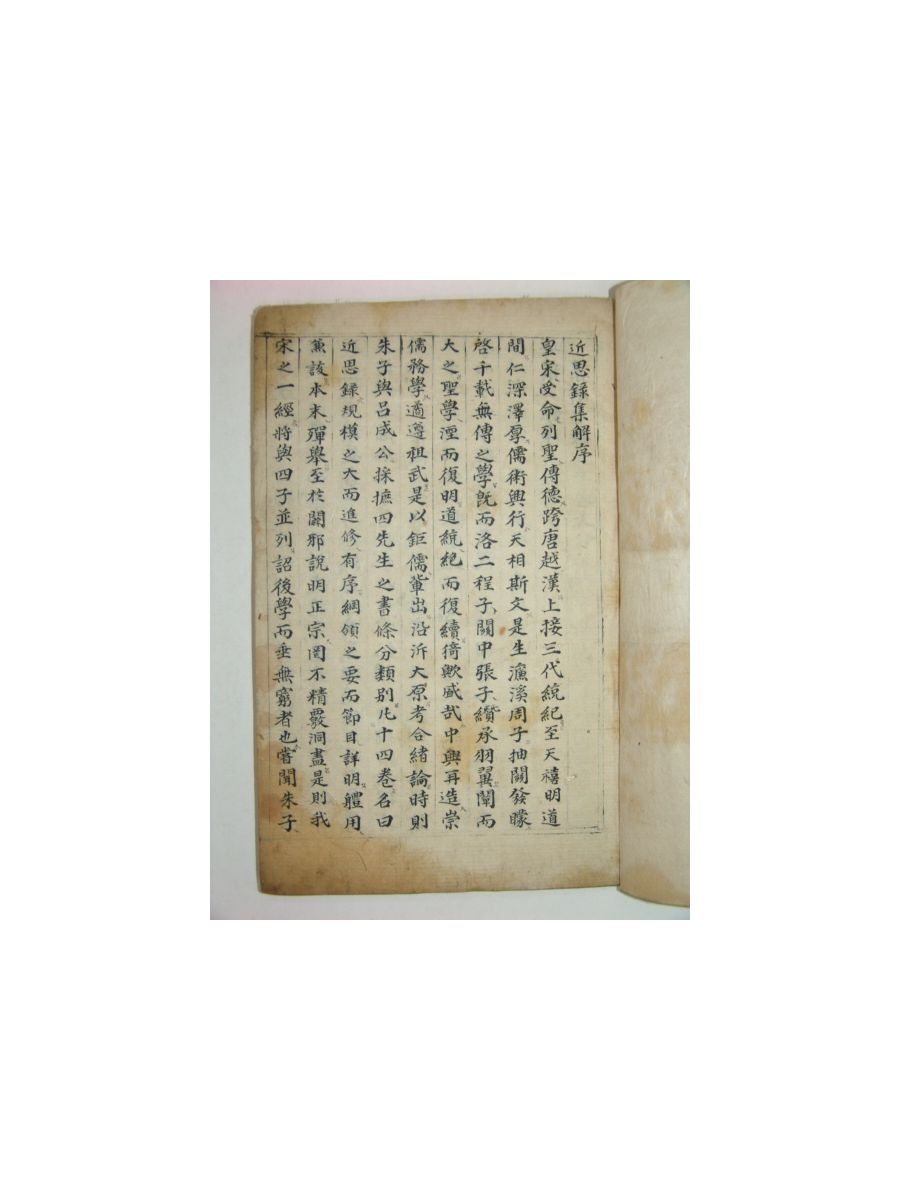 近思録集解序
皇宋受命列聖傳德跨唐越漢上接三代統紀至天禧明道
間仁深澤厚儒術興行天相斯文是生濂溪周子抽關發矇
啓千載無傳之學旣而洛二程子關中張子纘承羽翼闡而
大之聖學湮而復明道統絶而復續猗歟盛哉中興再造崇
儒務學遹遵祖武是以鉅儒輩出沿泝大原考合緖論時則
朱子與呂成公採摭四先生之書條分類別凡十四卷名曰
近思録規模之大而進修有序綱領之要而節目詳明軆用
兼該本末殫舉至於闢邪說明正宗罔不精覈洞盡是則我
宋之一經將與四子並列詔後學而垂無窮者也嘗聞朱子